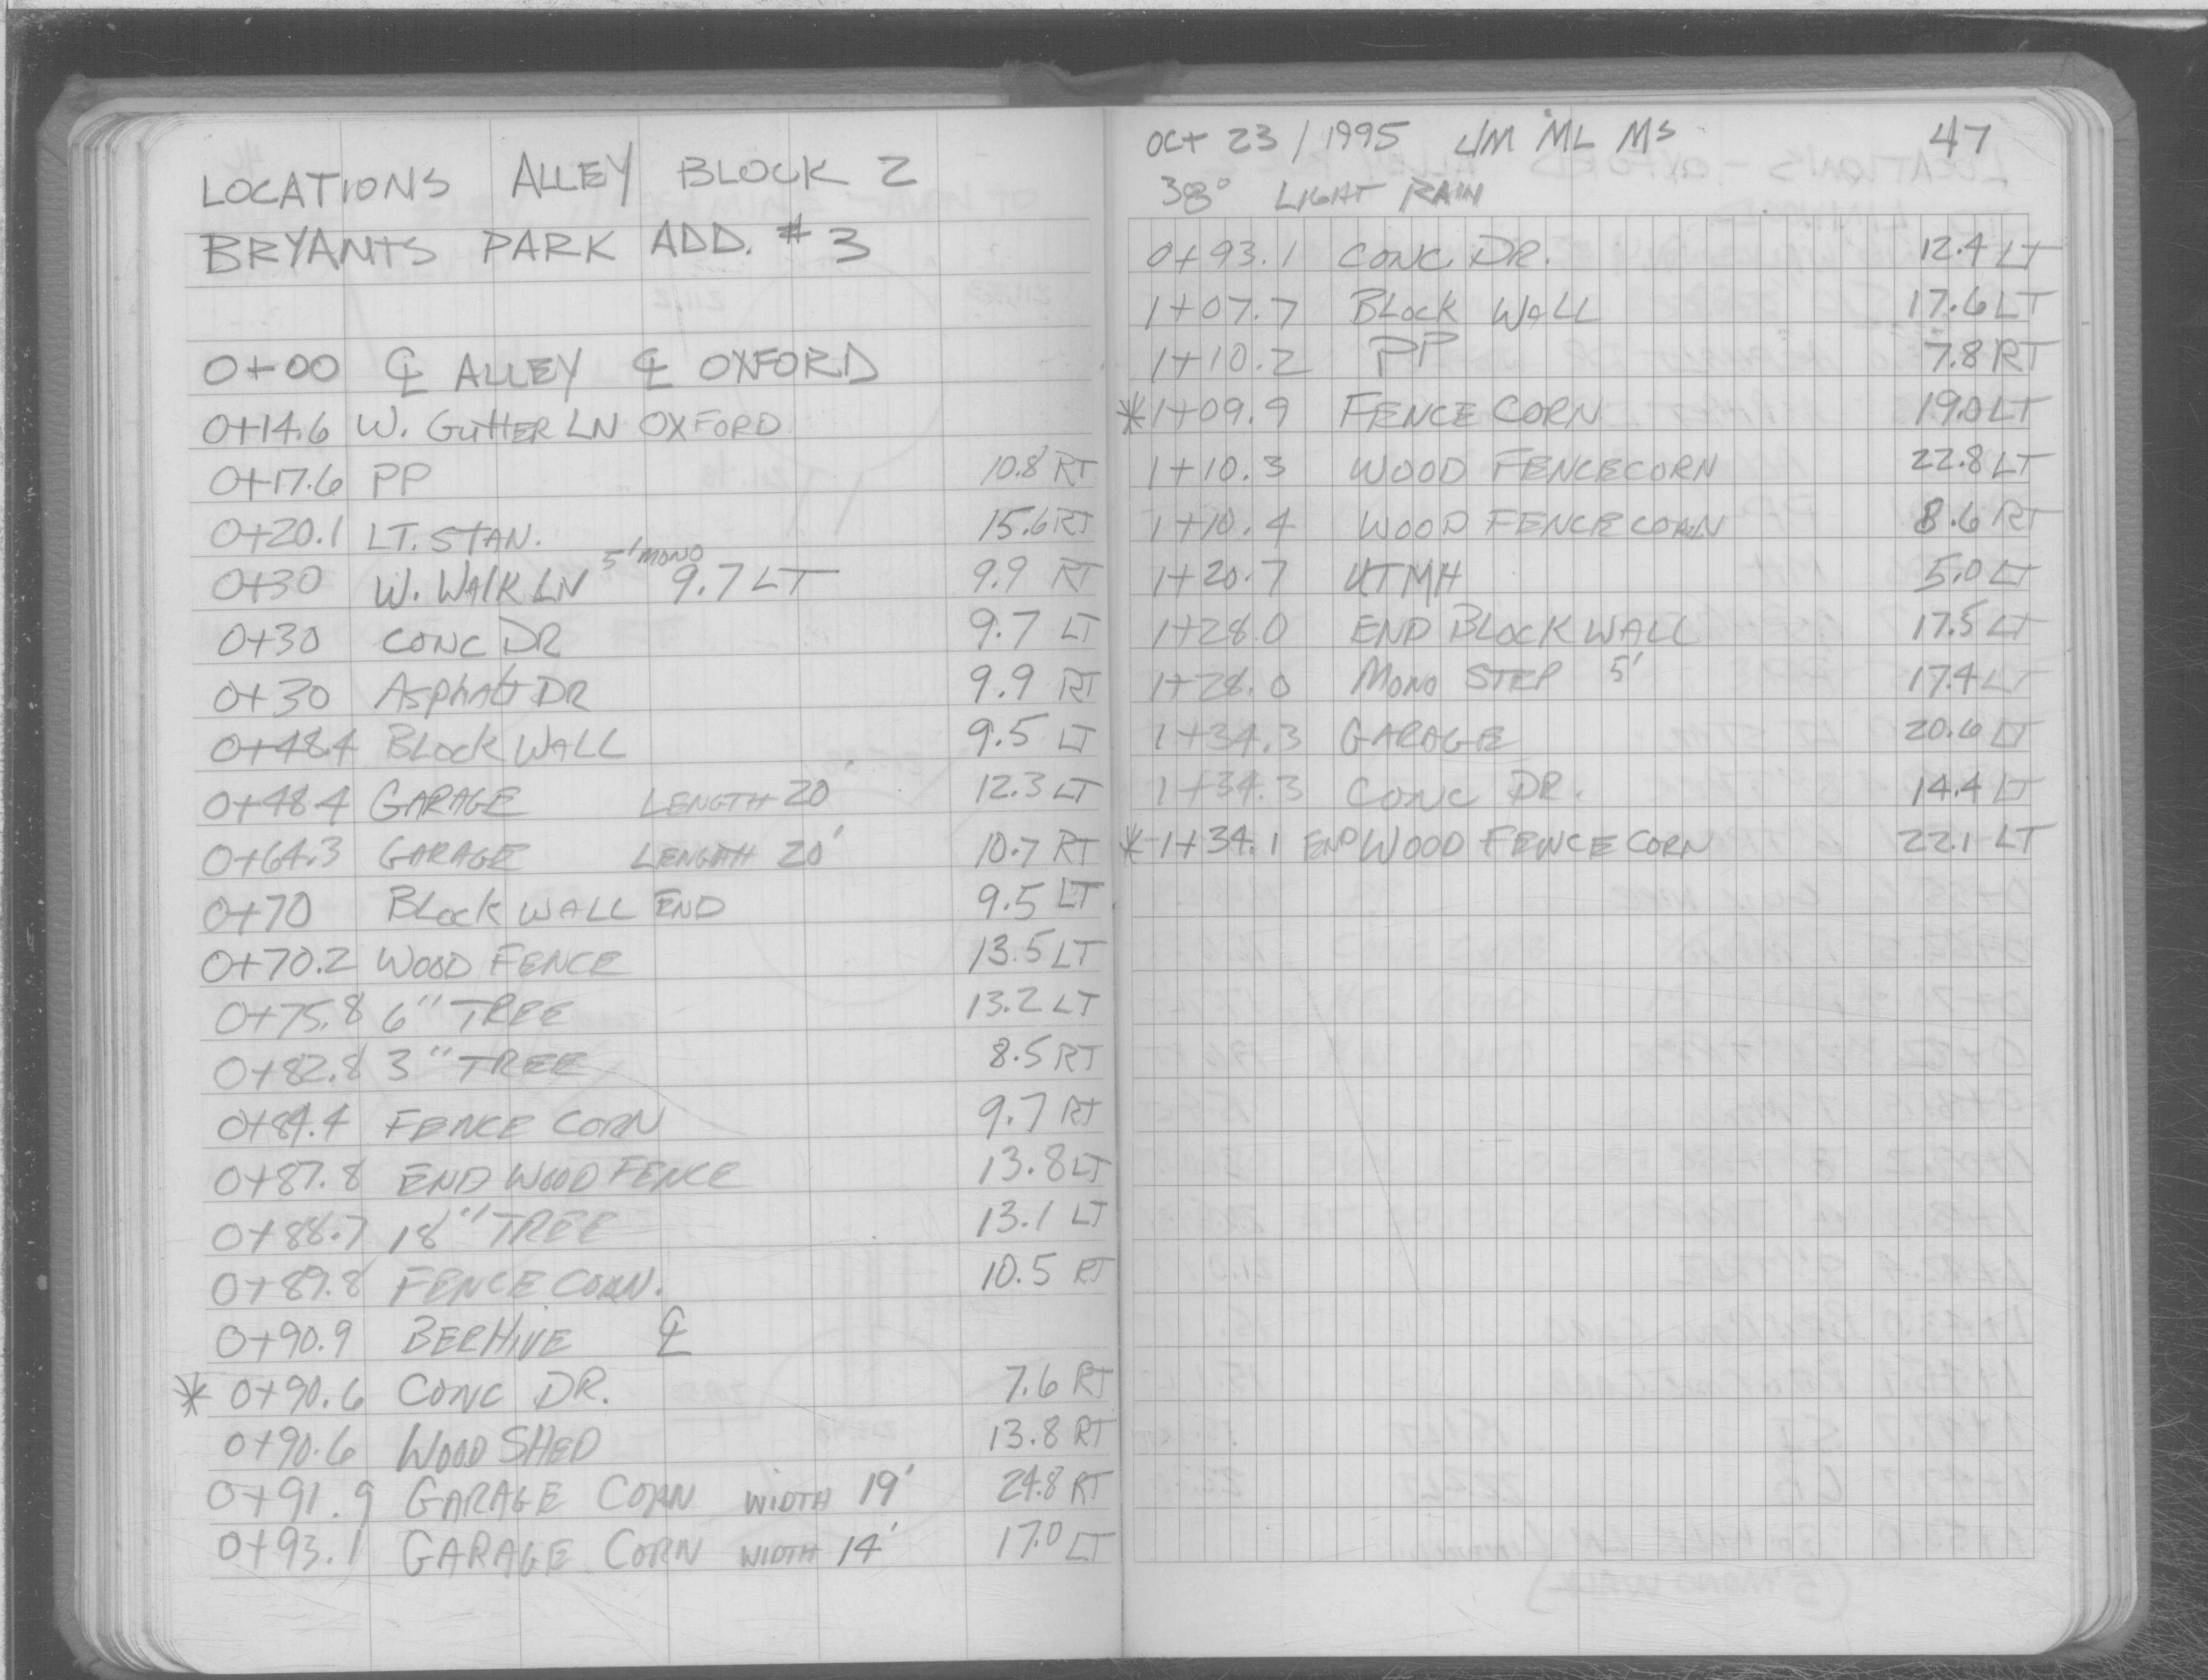 LOCATIONS ALLEY BLOCK 2
BRYANTS PARK ADD. #3
0+00 ℄ ALLEY ℄ OXFORD
0+14.6 W. GUTTER LN OXFORD
0+17.6 PP 10.8 RT
0+20.1 LT. STAN. 15.6 RT
0+30 W. WALK LN 5' MONO 9.7 LT 9.9 RT
0+30 CONC DR 9.7 LT
0+30 ASPHALT DR 9.9 RT
0+48.4 BLOCK WALL 9.5 LT
0+48.4 GARAGE LENGTH 20' 12.3 LT
0+64.3 GARAGE LENGTH 20' 10.7 RT
0+70 BLOCK WALL END 9.5 LT
0+70.2 WOOD FENCE 13.5 LT
0+75.8 6" TREE 13.2 LT
0+82.8 3" TREE 8.5 RT
0+84.4 FENCE CORN 9.7 RT
0+87.8 END WOOD FENCE 13.8 LT
0+88.7 18" TREE 13.1 LT
0+89.8 FENCE CORN. 10.5 RT
0+90.9 BEEHIVE ℄
* 0+90.6 CONC DR. 7.6 RT
0+90.6 WOOD SHED 13.8 RT
0+91.9 GARAGE CORN WIDTH 19' 24.8 RT
0+93.1 GARAGE CORN WIDTH 14' 17.0 LT
OCT 23 / 1995 JM ML MS 47
38° LIGHT RAIN
0+93.1 CONC DR. 12.4 LT
1+07.7 BLOCK WALL 17.6 LT
1+10.2 PP 7.8 RT
* 1+09.9 FENCE CORN 19.0 LT
1+10.3 WOOD FENCE CORN 22.8 LT
1+10.4 WOOD FENCE CORN 8.6 RT
1+20.7 UTMH 5.0 LT
1+28.0 END BLOCK WALL 17.5 LT
1+28.0 MONO STEP 5' 17.4 LT
1+34.3 GARAGE 20.6 LT
1+34.3 CONC DR. 14.4 LT
* 1+34.1 END WOOD FENCE CORN 22.1 LT